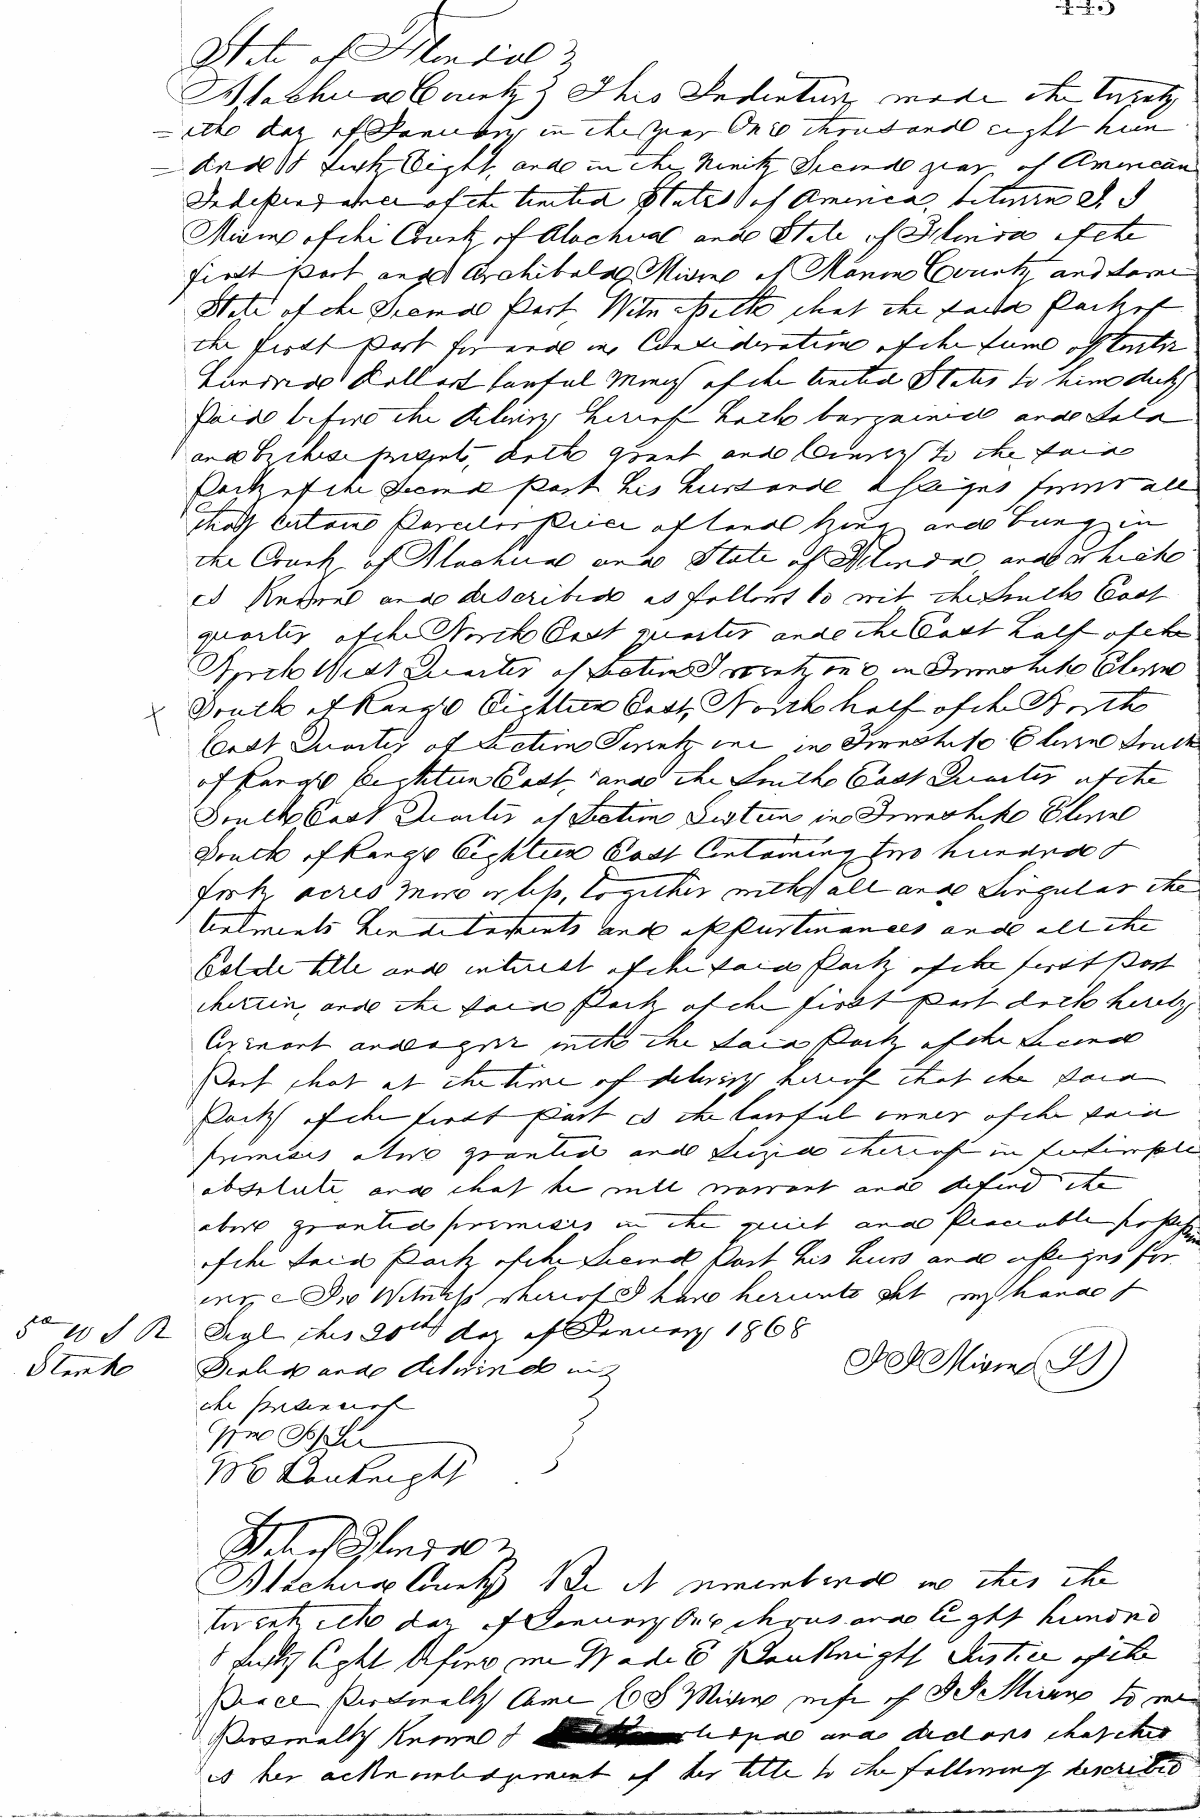 445
State of Florida }
Alachua County } This Indenture made the twenty
=ith day of January in the year One thousand eight hun
=dred & Sixty Eight, and in the Ninety Second year of American
Independance of the United States of America, between J. J
Mixon of the County of Alachua and State of Florida of the
first part and Archibald Mixon of Marion County and same
State of the Second part, Witnesseth that the said Party of
the first part for and in Consideration of the sum of twelve
hundred Dollars lawful Money of the United States to him duly
paid before the delivery hereof hath bargained and Sold
and by these presents, doth grant and Convey to the said
Party of the Second part his heirs and assigns forever all
that certain Parcel or piece of land lying and being in
the County of Alachua and State of Florida, and which
is Known and described as follows to wit the South East
quarter of the North East quarter and the East half of the
North West Quarter of Section Twenty one in Township Eleven
South of Range Eighteen East, North half of the North
East Quarter of Section Twenty one in Township Eleven South
of Range Eighteen East, and the South East Quarter of the
South East Quarter of Section Sixteen in Township Eleven
South of Range Eighteen East Containing two hundred &
forty acres more or less, together with all and Singular the
tenements hereditaments and appurtinances and all the
Estate title and interest of the said Party of the first Part
therein, and the said Party of the first part doth hereby
Covenant and agree with the said Party of the Second
Part that at the time of delivery hereof that the said
Party of the first part is the lawful owner of the said
premises above granted and Seized thereof in feesimple
absolute, and that he will warrant and defend the
above granted premises in the quiet and Peaceable possession
of the said Party of the Second Part his heirs and assigns for
ever In Witness whereof I have hereunto Set my hand &
5c U S R Seal this 20th day of January 1868
Stamp Sealed and delivered in } J J Mixon (LS)
the presence of
Wm
W E Bauknight
State of Florida }
Alachua County } Be it remembered on this the
twentyith day of January One thousand Eight hundred
& Sixty Eight before me Wade E Bauknight Justice of the
Peace Personally Came E S Mixon wife of J J Mixon to me
Personally Known & and declars that this
is her acknowledgement of her title to the following described